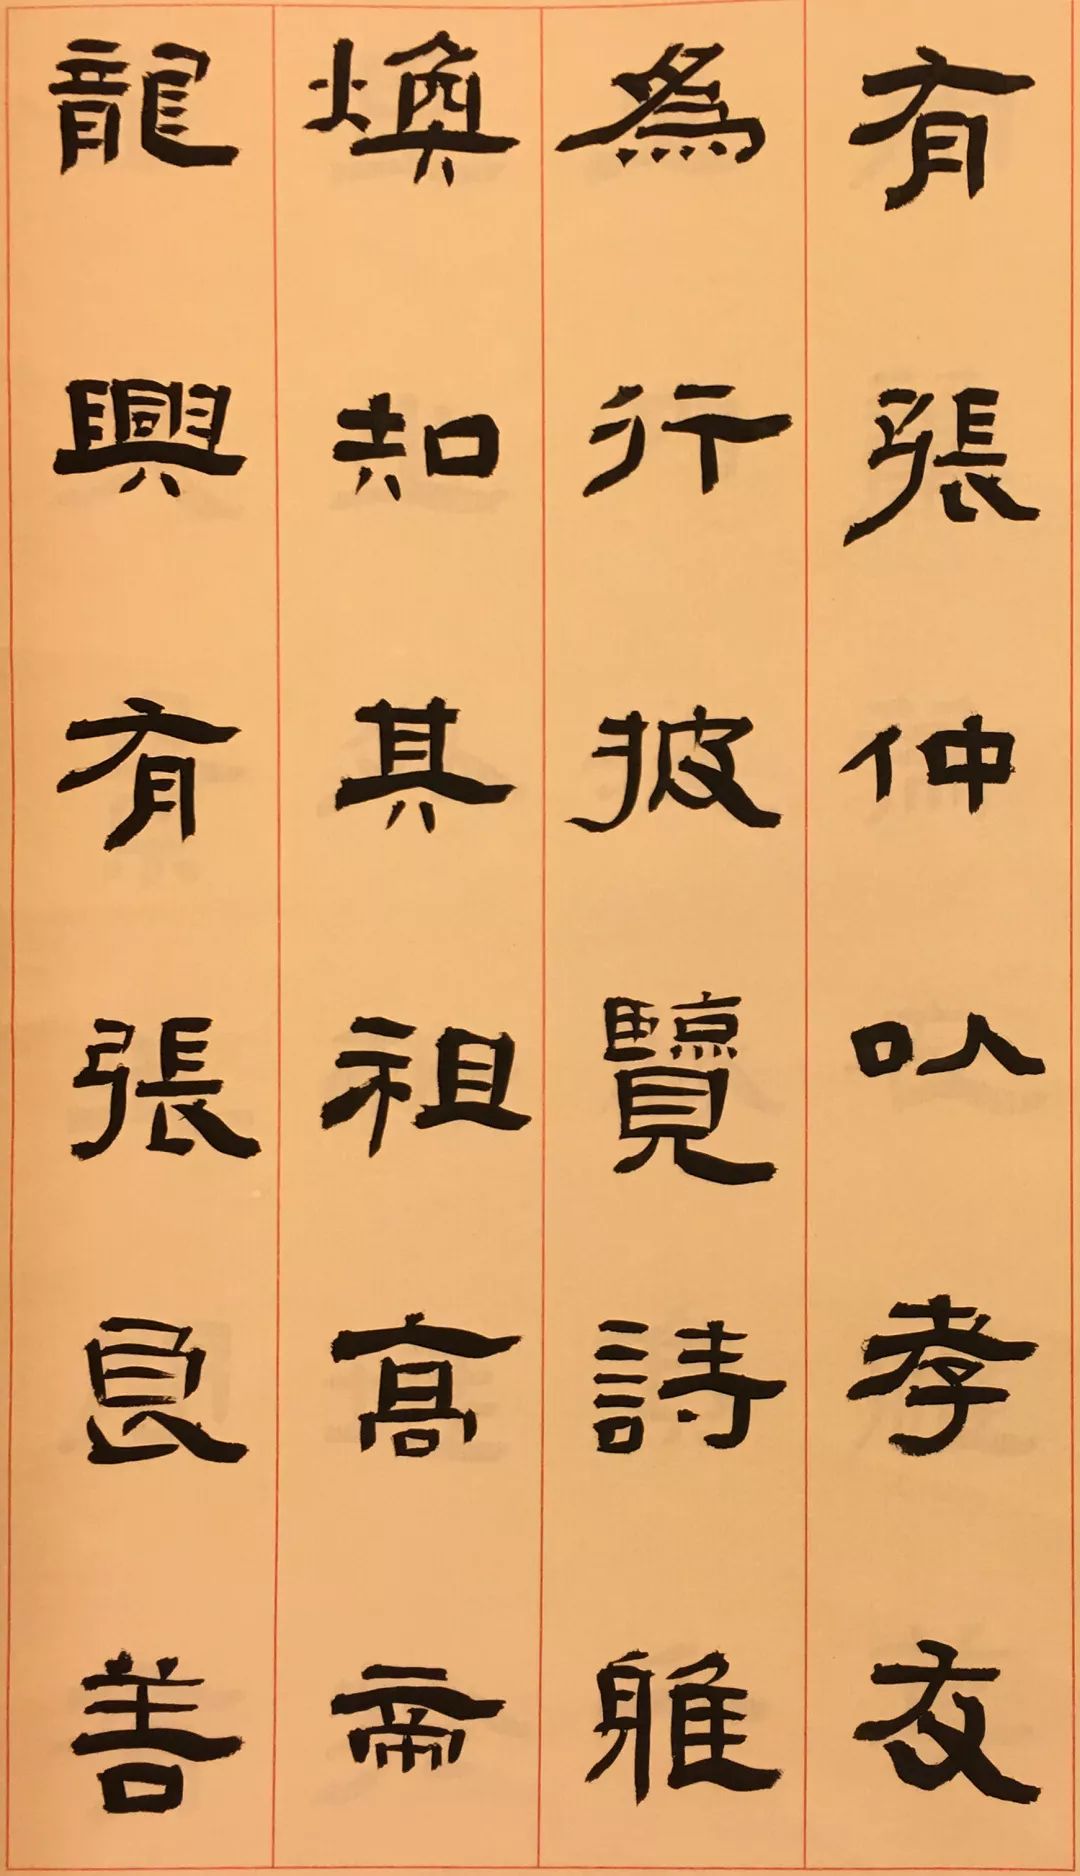 有張仲以孝友
為行披覽詩雅
煥知其祖高帝
龍興有張良善